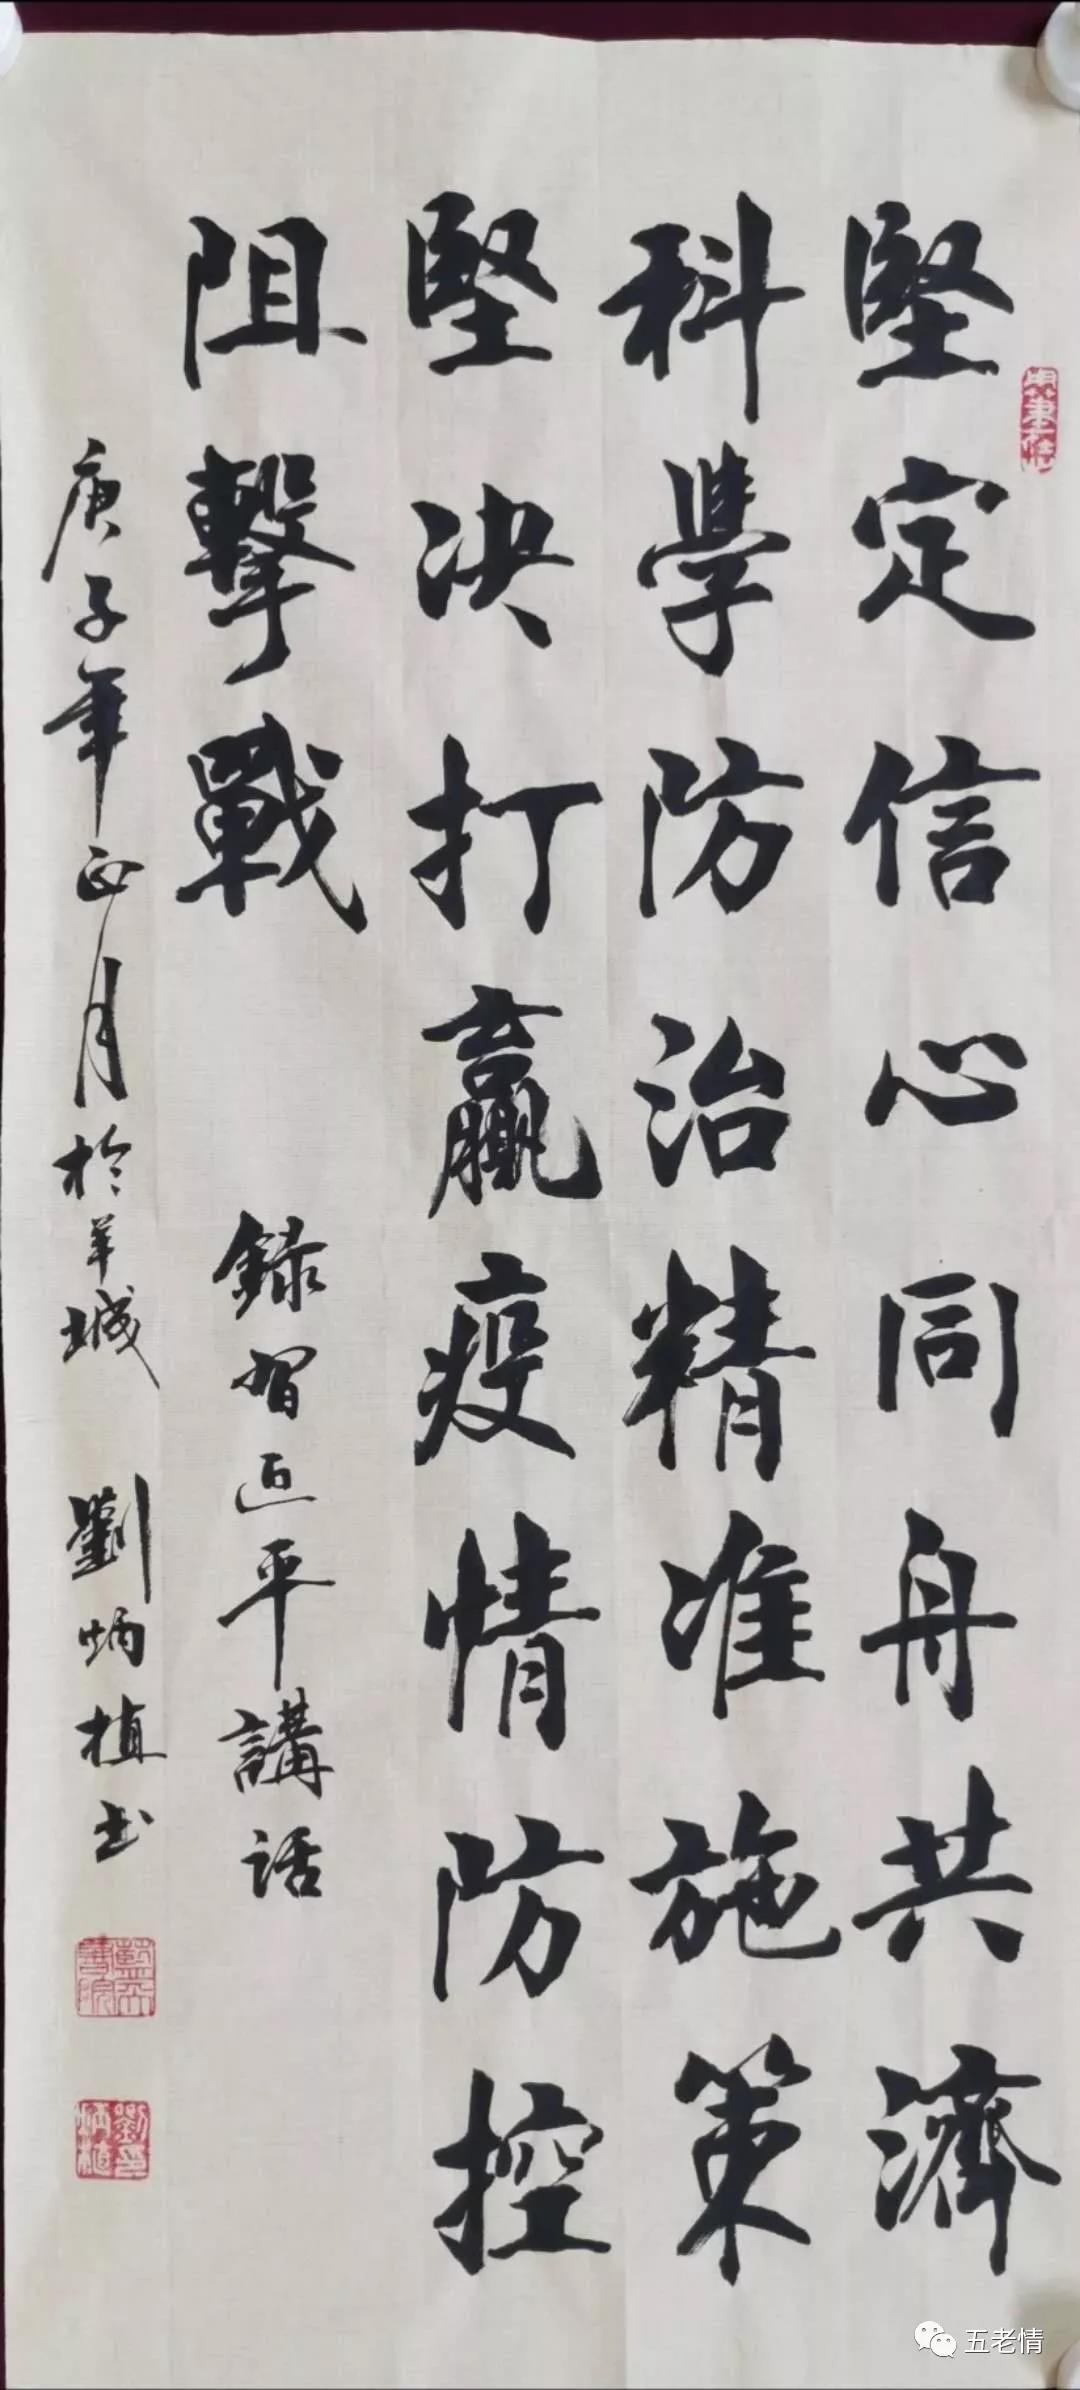 堅定信心同舟共濟
科學防治精准施策
堅决打贏疫情防控
阻擊戰
錄習近平講話
庚子年正月於羊城 劉炳植书
五老情